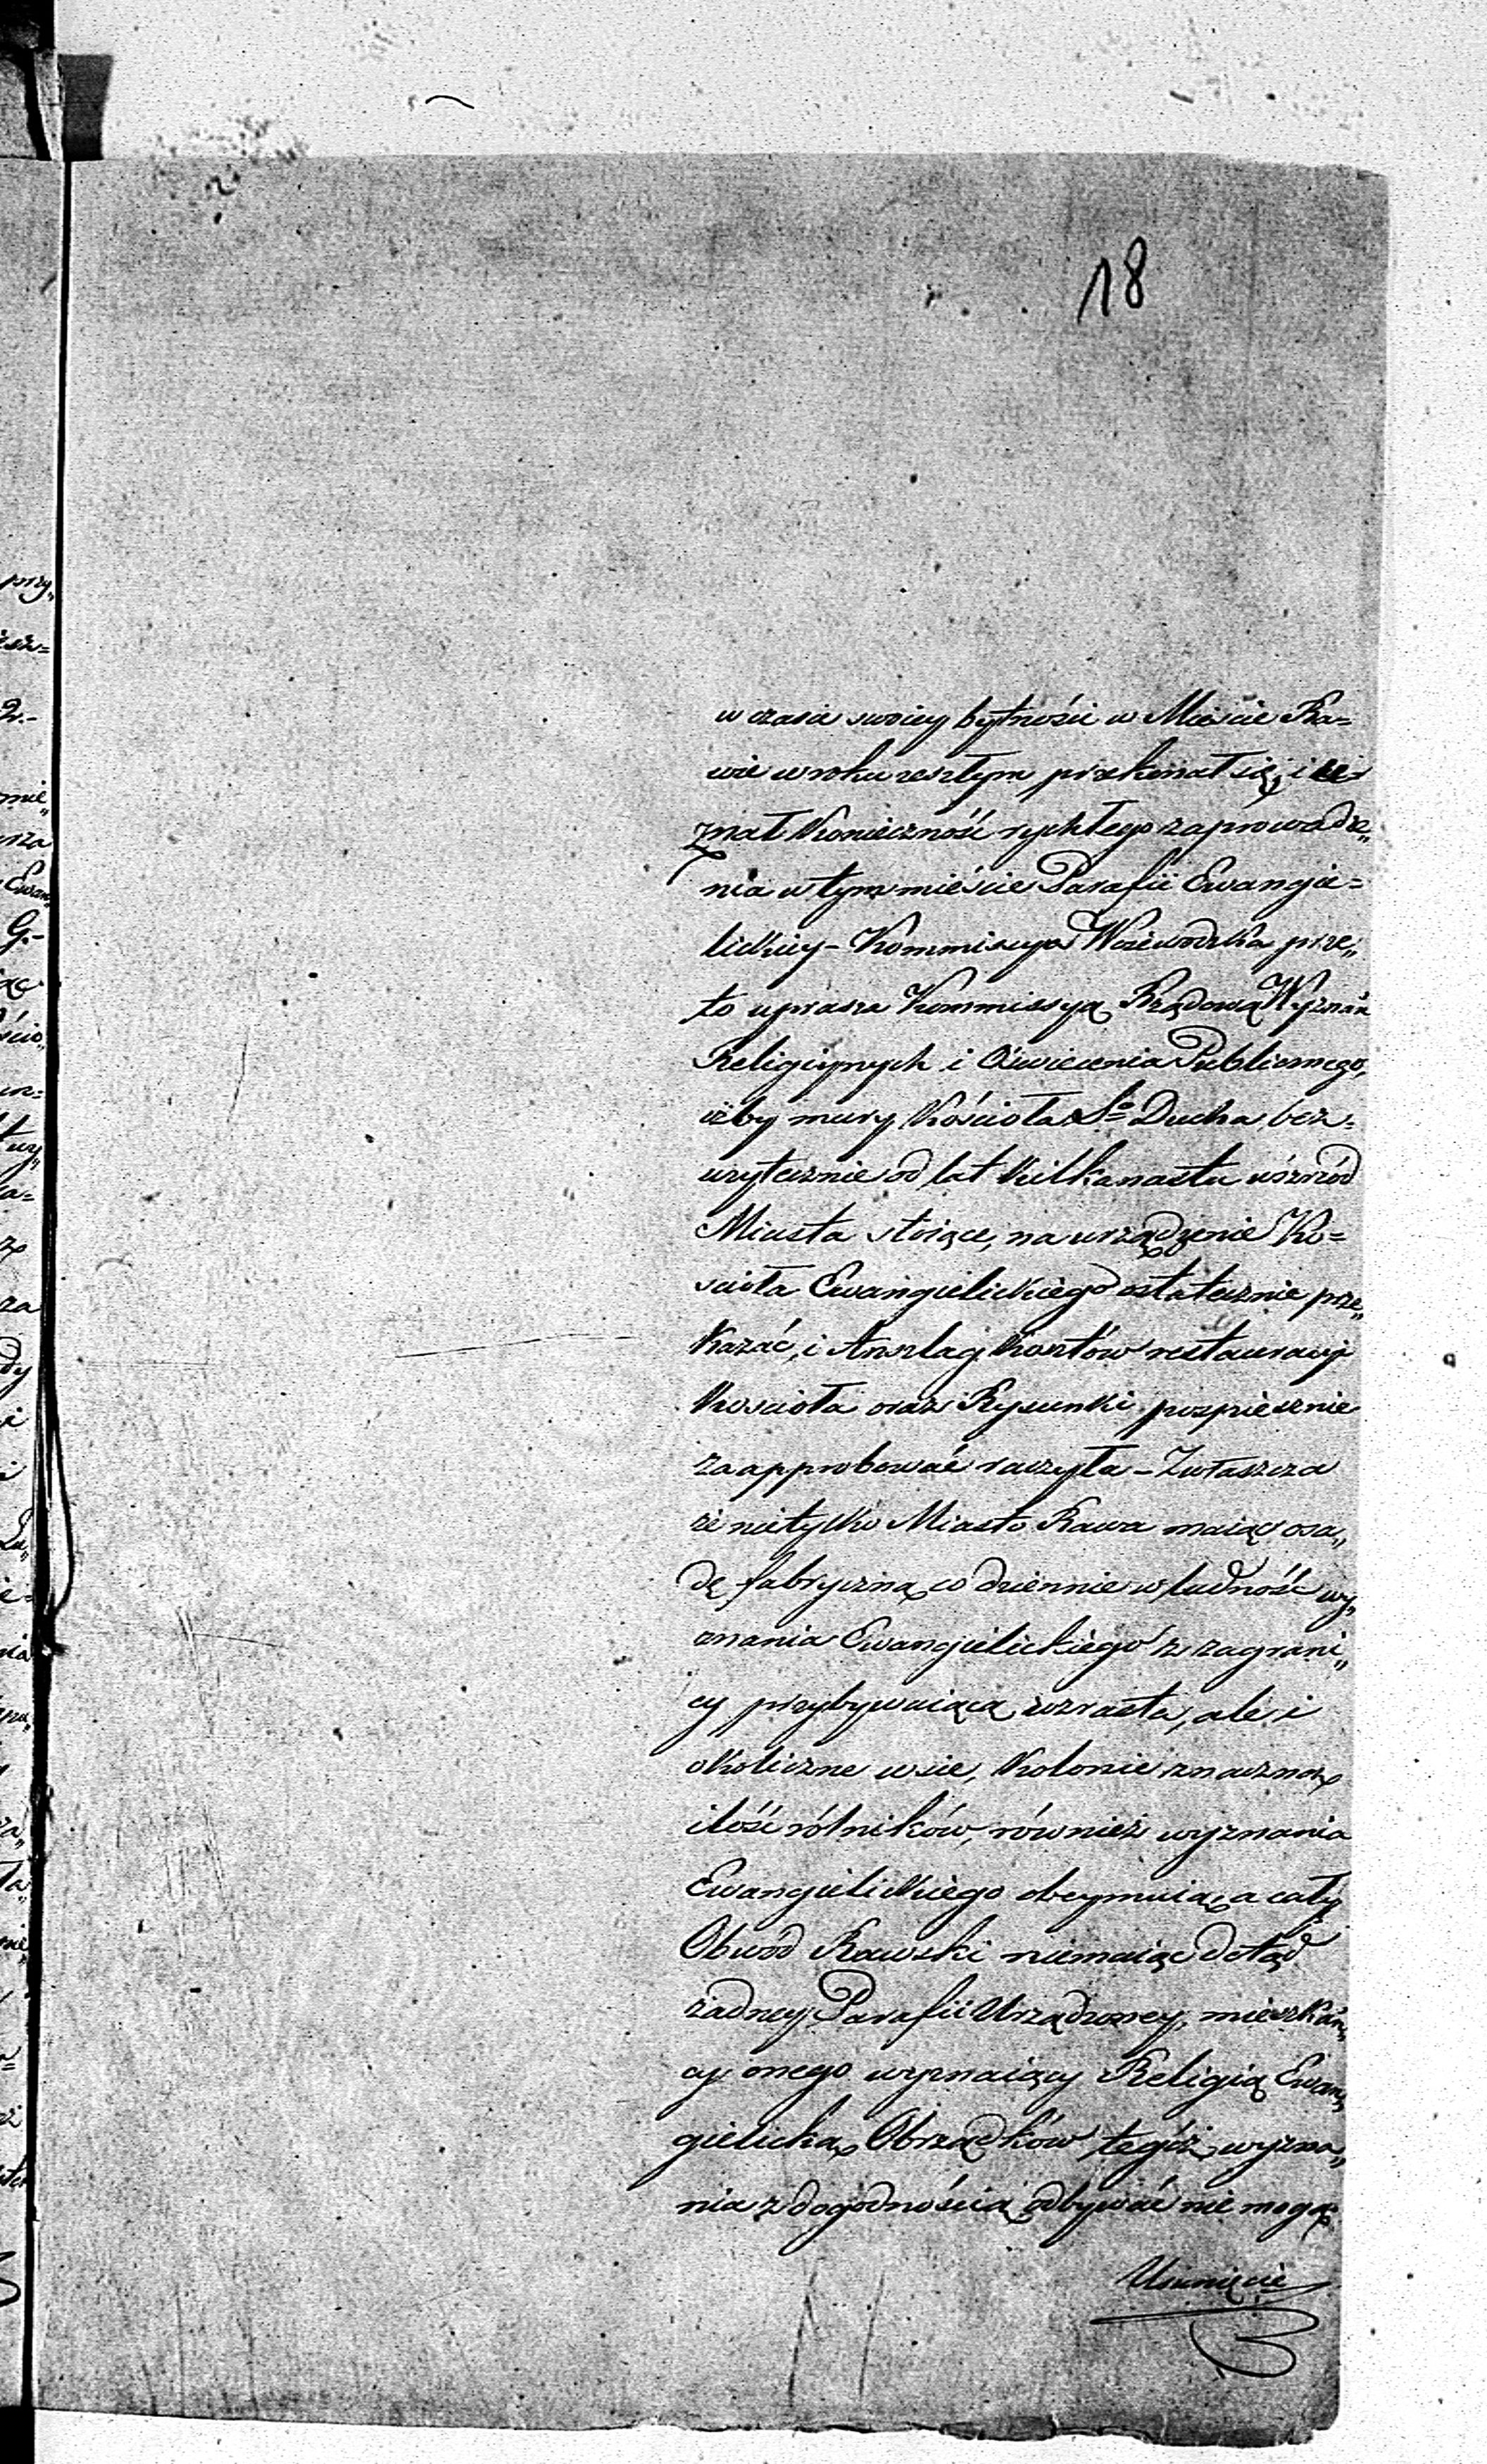 18
w czasie swoiey bytności w Mieście Ra=
wie w roku zeszłym przekonał się, i u=
znał konieczność rychłego zaprowadze„
nia w tym mieście Parafii Ewangie=
lickiey - Kommissya Woiewodzka prze„
to uprasza Kommissyą Rządową Wyznań
Religiynych i Oświecenia Publicznego,
iżby mury Kościoła Sgo Ducha, bez=
użytecznie od lat kilkanastu wśrzód
Miasta stoiące, na urządzenie Ko=
scioła Ewangielickiego ostatecznie prze„
kazać, i Anszlag kosztów restauracyi
Kościoła oraz Rysunki pospiesznie
zaapprobować raczyła - Zwłaszcza
że nietylko Miasto Rawa maiąc osa„
dę fabryczną co dziennie w ludność wy„
znania Ewangielickiego z zagrani„
cy przybywaiącą wzrasta, ale i
okoliczne wsie, kolonie znaczną
ilość rólników, również wyznania
Ewangielickiego obeymuią, a cały
Obwód Rawski niemaiąc dotąd
żadney Parafii Urządzoney, mieszkań„
cy onego wyznaiący Religią Ewan„
gielicką Obrządków tegóż wyzna„
nia z dogodnością odbywać nie mogą.
Usunięcie
przy„
2.-
mie„
rza
Ewan„
G.-
ścio„
za
dy
i